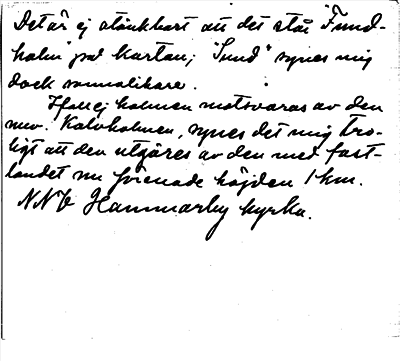 Det är ej otänkbart att det står "Fund-
holm" på kartan; "Sund" synes mig
dock sannolikare.
Ifall ej holmen motsvaras av den
nuv. Kalvholmen, synes det mig tro-
ligt att den utgöres av den med fast-
landet nu förenade höjden 1 km.
NNV Hammarby kyrka.